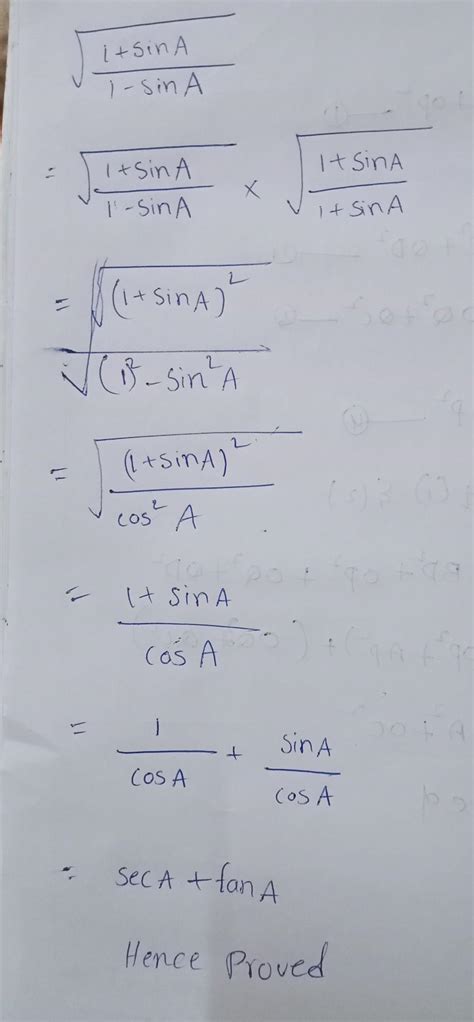 √((1+sinA)/(1-sinA))
= √((1+sinA)/(1-sinA)) × √((1+sinA)/(1+sinA))
= √((1+sinA)²)/√((1)²-sin²A)
= √((1+sinA)²/cos²A)
= (1+sinA)/(cosA)
= 1/cosA + sinA/cosA
= secA+tanA
Hence Proved